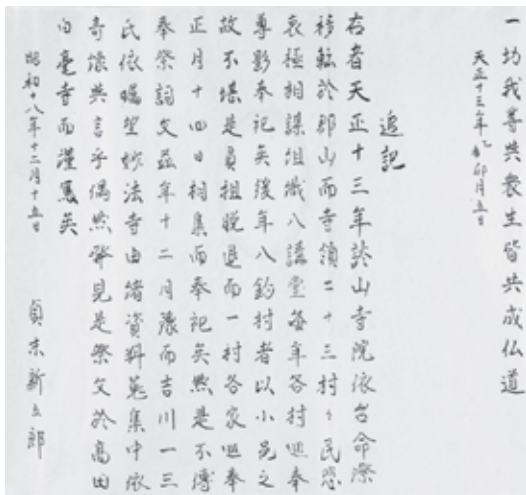 一切我等共衆生皆共成仏道
天正十三年乙酉卯月五日
追記
右者天正十三年談山寺院依台命際
移転於郡山而寺領二十三村々民悲
哀極相謀組織八講堂毎年各村巡奉
尊影奉祀矣後年八釣村者以小邑之
故不堪是負担脱退而一村各家巡奉
正月十四日相集而奉祀矣然是不傳
奉祭詞文茲年十二月豫而吉川一三
氏依嘱望妙法寺由緒資料蒐集中依
奇懐共言乎偶然發見是祭文於高田
白毫寺而謹写矣
昭和十八年十二月十五日
貞末新五郎